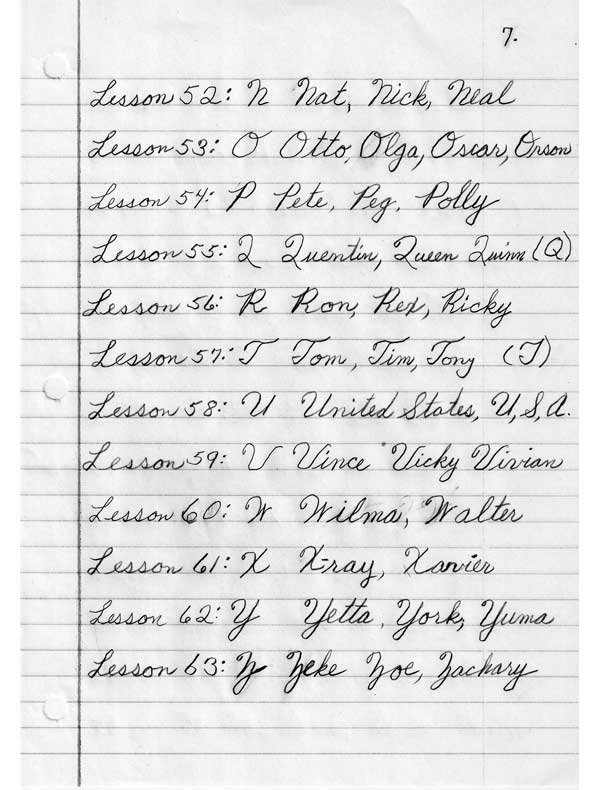 7.
Lesson 52: N Nat, Nick, Neal
Lesson 53: O Otto, Olga, Oscar, Orson
Lesson 54: P Pete, Peg, Polly
Lesson 55: Q Quentin, Queen Quinn (Q)
Lesson 56: R Ron, Rex, Ricky
Lesson 57: T Tom, Tim, Tony (T)
Lesson 58: U United States, U,S,A.
Lesson 59: V Vince Vicky Vivian
Lesson 60: W Wilma, Walter
Lesson 61: X X-ray, Xavier
Lesson 62: Y Yetta, York, Yuma
Lesson 63: Z Zeke Zoe, Zachary